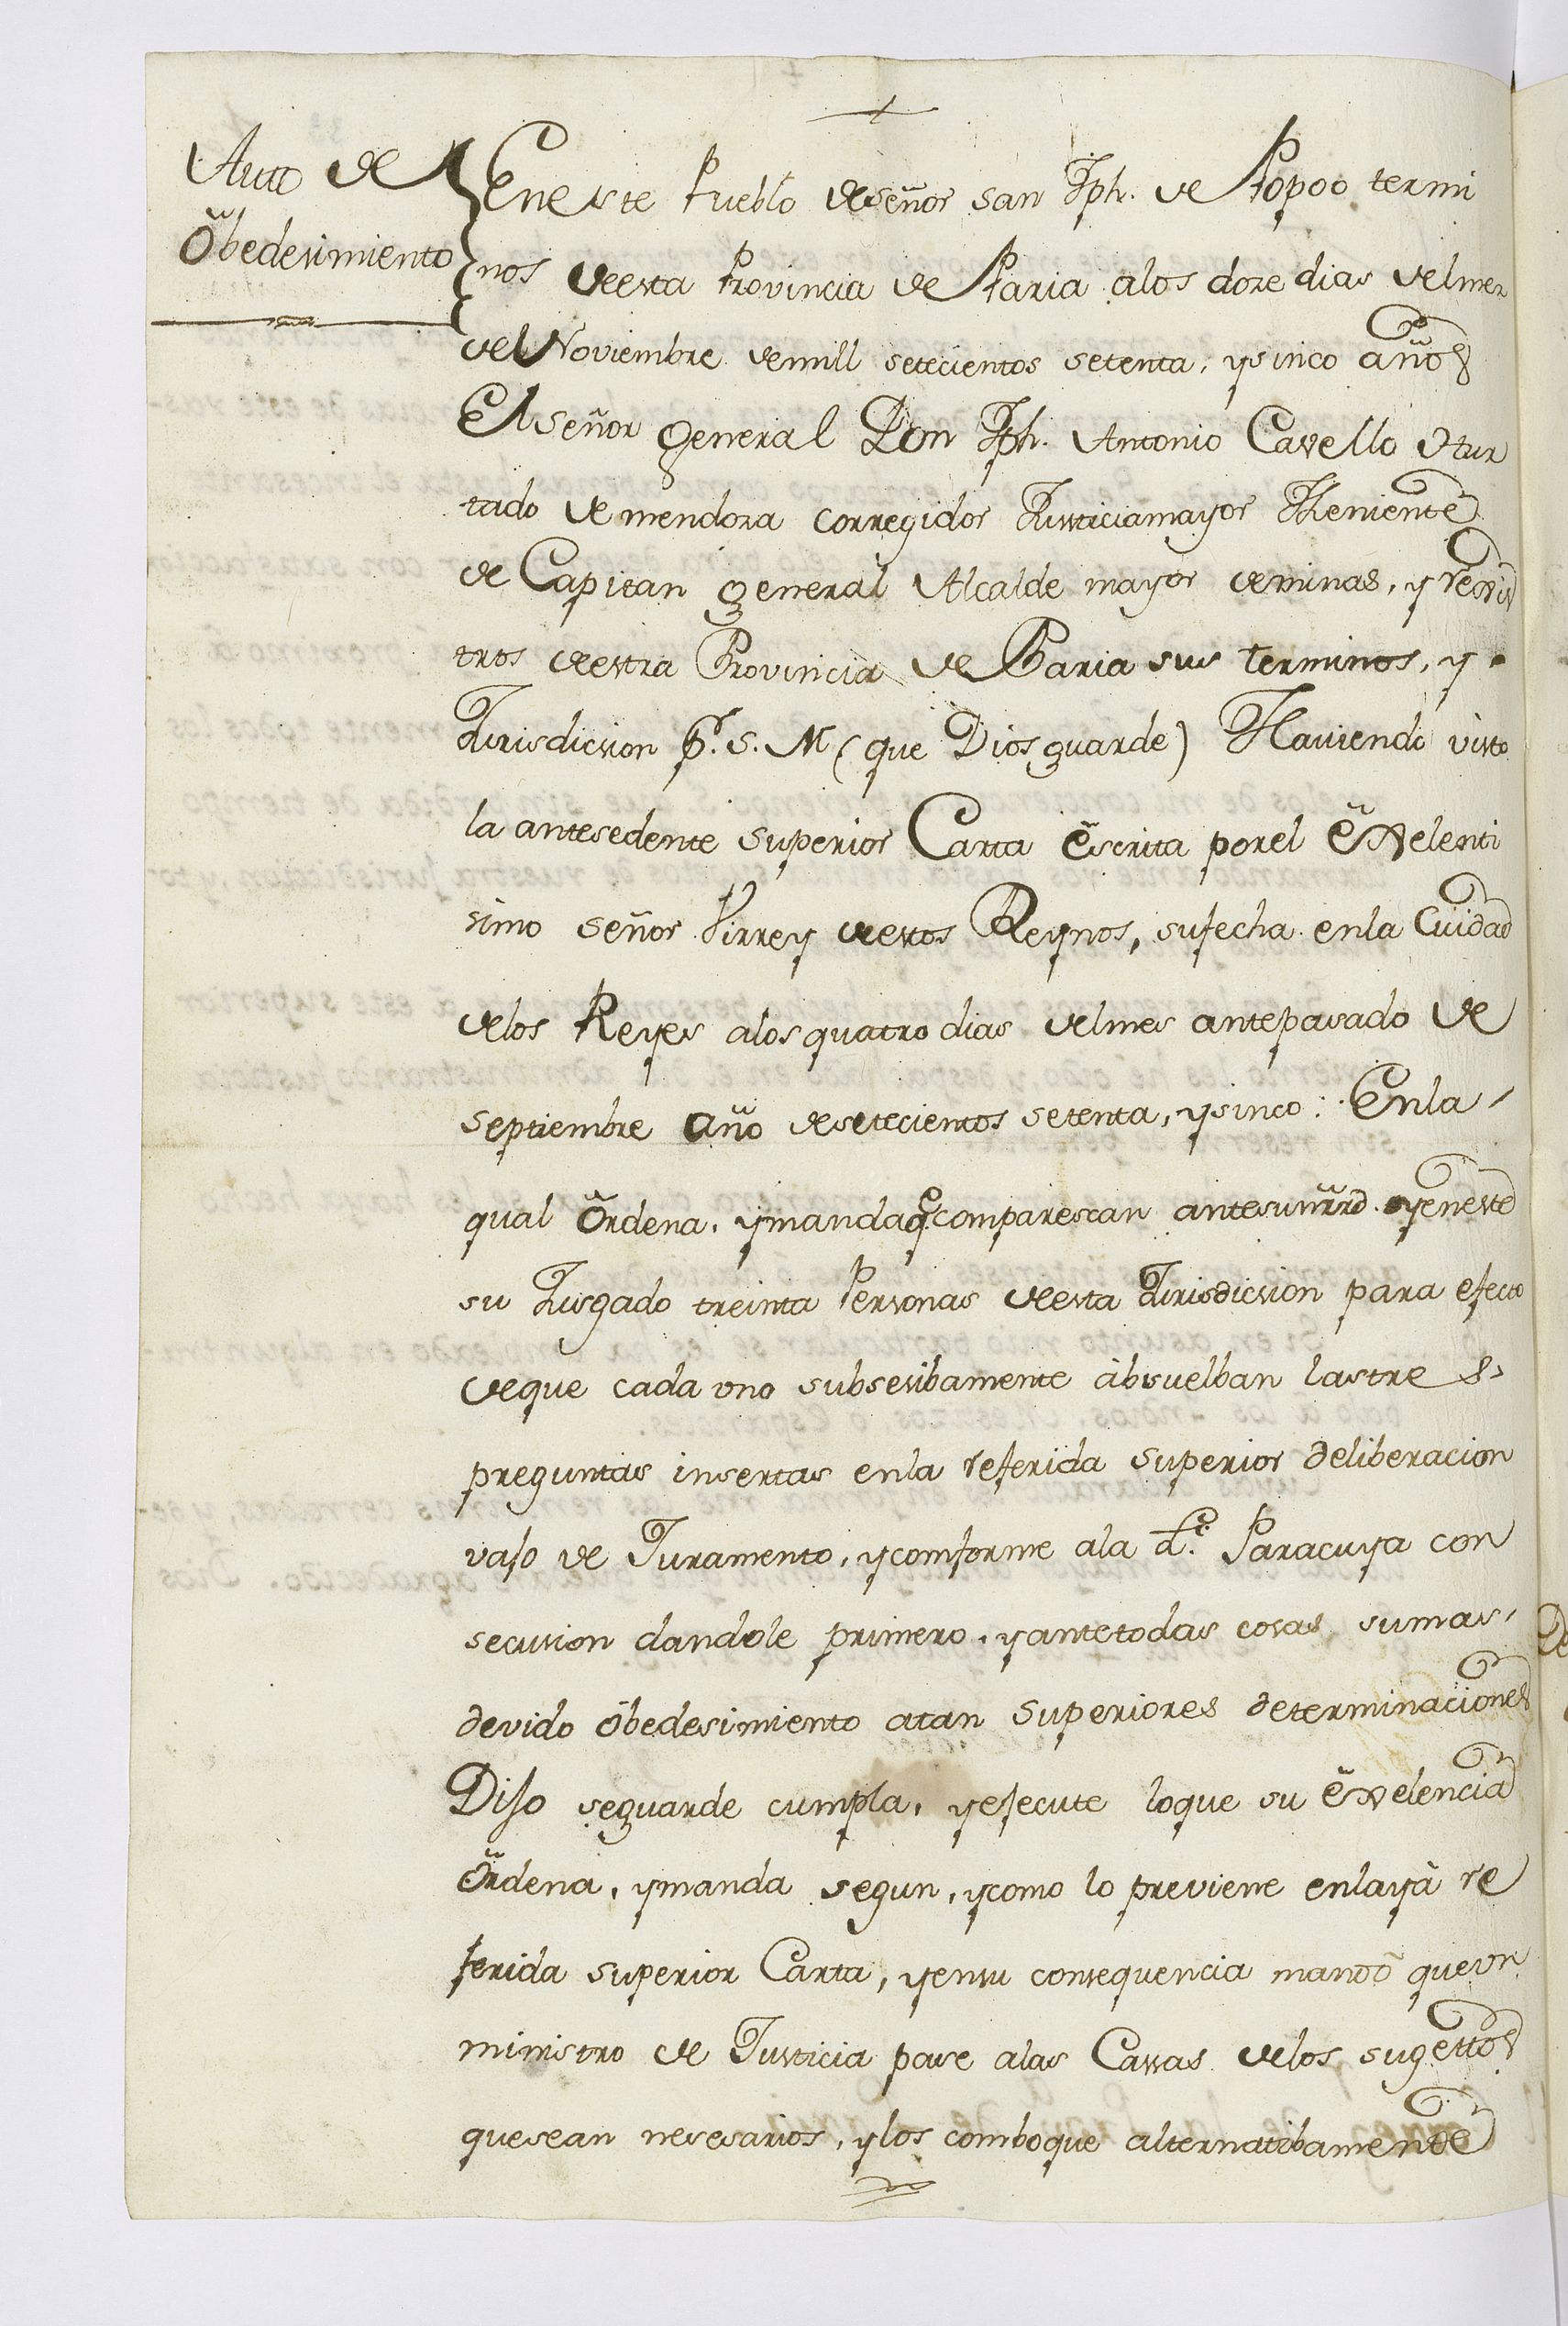 Auto de
Obedesimiento
En este Pueblo de señor san Jph. de Popoo termi
nos de esta Provincia de Paria a los doze dias del mez
de Noviembre de mill setecientos setenta, y sinco años
El señor General Don Jph. Antonio Cavello Vtur
tado de mendoza corregidor Justicia mayor Theniente
de Capitan general Alcalde mayor de minas, y regis
tros de estta Provincia de Paria sus terminos, y
Jurisdicsion pr. S. M (que Dios guarde) Haviendo visto
la antesedente superior Carta escrita por el exelenti
simo señor Virrey de estos Reynos, su fecha en la Ciudad
de los Reyes a los quatro dias del mes antepasado de
septiembre año de setecientos setenta, y sinco: En la
qual ordena, y manda q.e comparescan ante su mrd. y en este
su Jusgado treinta Personas de esta Jurisdicsion para efecto
de que cada vno subsesibamente absuelban las tres
preguntas insertas en la referida superior deliberacion
vajo de Juramento, y comforme a la Para cuya con
secusion dandole primero, y ante todas cosas su mas
devido obedesimiento a tan superiores determinaciones
Dijo se guarde cumpla, y ejecute lo que su exelencia
ordena, y manda segun, y como lo previene en la ya re
ferida superior Carta, y en su consequencia mandó que vn
ministro de Justicia pase a las Cassas de los sugettos
que sean nesesarios, y los comboque alternatibamente